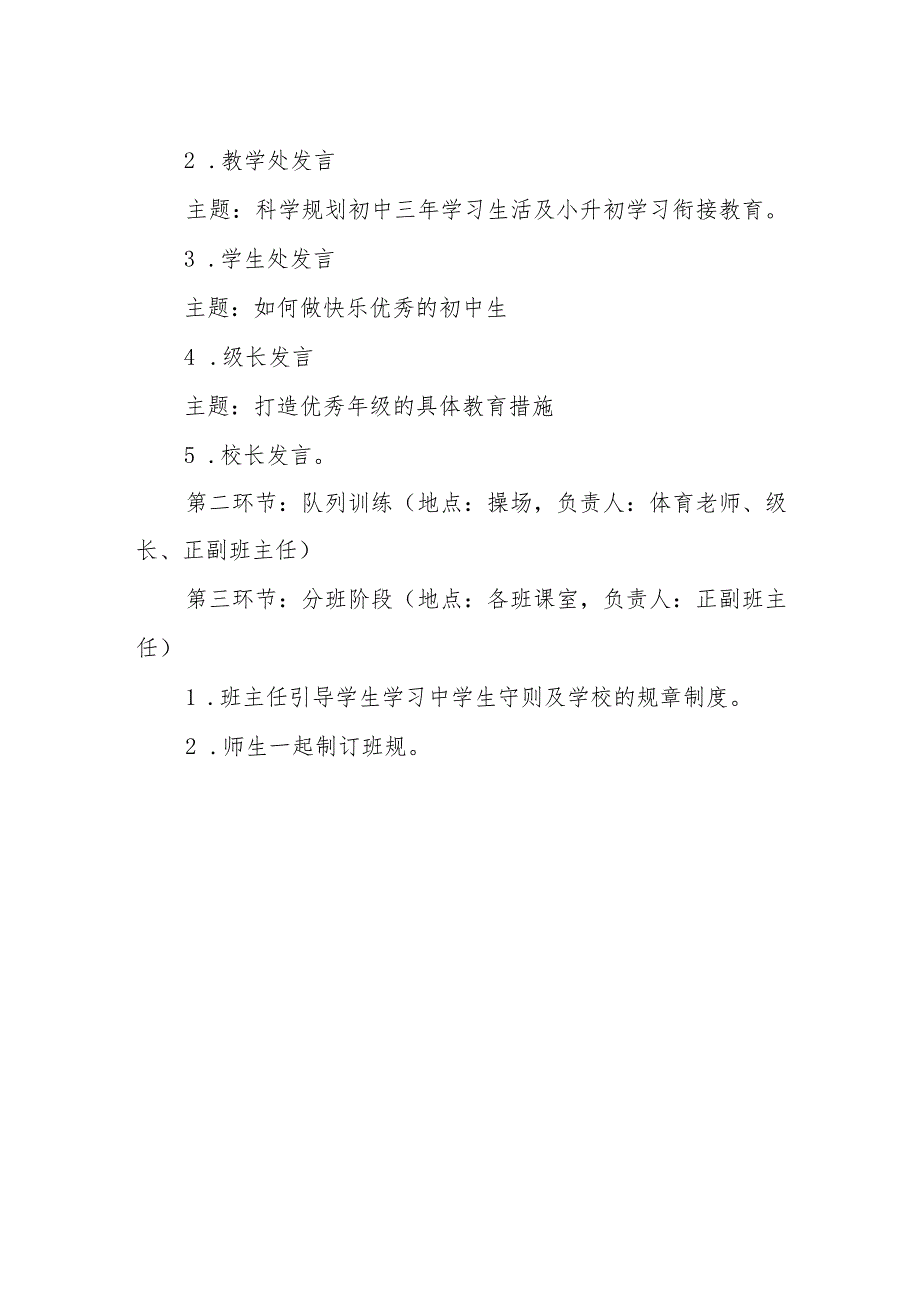 2 .教学处发言
主题：科学规划初中三年学习生活及小升初学习衔接教育。
3 .学生处发言
主题：如何做快乐优秀的初中生
4 .级长发言
主题：打造优秀年级的具体教育措施
5 .校长发言。
第二环节：队列训练（地点：操场，负责人：体育老师、级
长、正副班主任）
第三环节：分班阶段（地点：各班课室，负责人：正副班主
任）
1 .班主任引导学生学习中学生守则及学校的规章制度。
2 .师生一起制订班规。